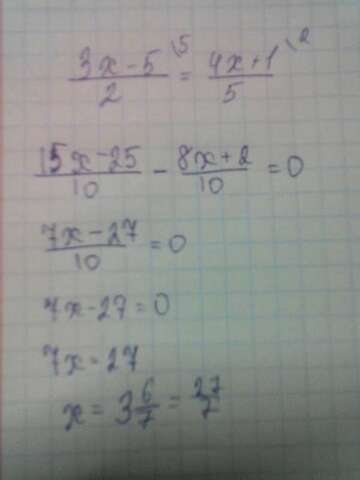 (3x-5)/2 \5 = (4x+1)/5 \2
(15x-25)/10 - (8x+2)/10 = 0
(7x-27)/10 = 0
7x-27=0
7x=27
x = 3 6/7 = 27/7